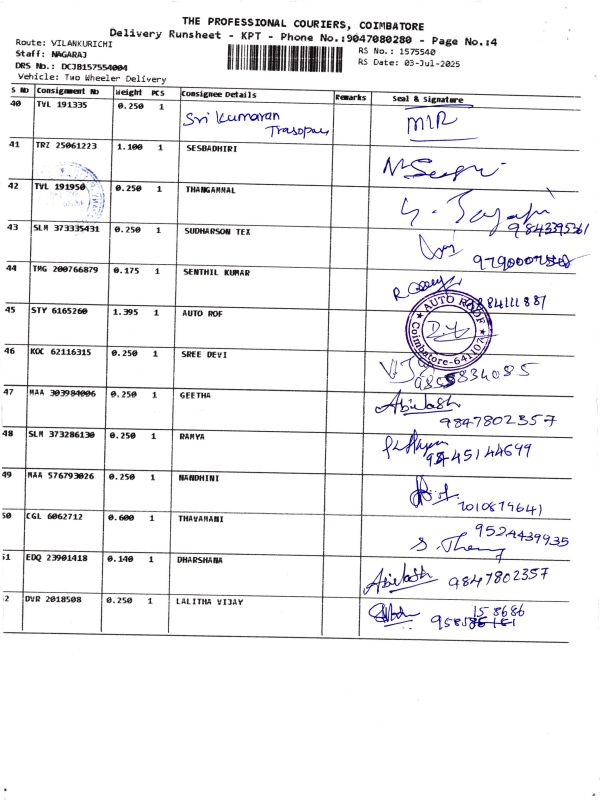 THE PROFESSIONAL COURIERS, COIMBATORE
Delivery Runsheet - KPT - Phone No.:9047080280 - Page No.:4
Route: VILANKURICHI
Staff: NAGARAJ
DRS No.: DCJB157554004
Vehicle: Two Wheeler Delivery
RS No.: 1575540
RS Date: 03-Jul-2025
S NO Consignment No Weight PCS Consignee Details Remarks Seal & Signature
40 TVL 191335 0.250 1 Sri Kumaran MIR
41 TRZ 25061223 1.100 1 SESBADHIRI
42 TVL 191950 0.250 1 THANGAMMAL
9843395361
43 SLM 373335431 0.250 1 SUDHARSON TEX
44 TMG 200766879 0.175 1 SENTHIL KUMAR
45 STY 6165260 1.395 1 AUTO ROF
AUTO ROOF
Coimbatore-641107
46 KOC 62116315 0.250 1 SREE DEVI
47 MAA 303984006 0.250 1 GEETHA
Abilash
9847802357
48 SLM 373286130 0.250 1 RAMYA
49 MAA 576793026 0.250 1 NANDHINI
50 CGL 6062712 0.600 1 THAVAMANI
9524439935
51 EDQ 23901418 0.140 1 DHARSHANA
Abilash 9847802357
2 DVR 2018508 0.250 1 LALITHA VIJAY